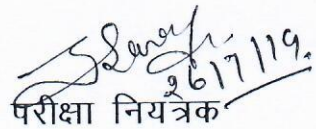 26/7/19.
परीक्षा नियंत्रक